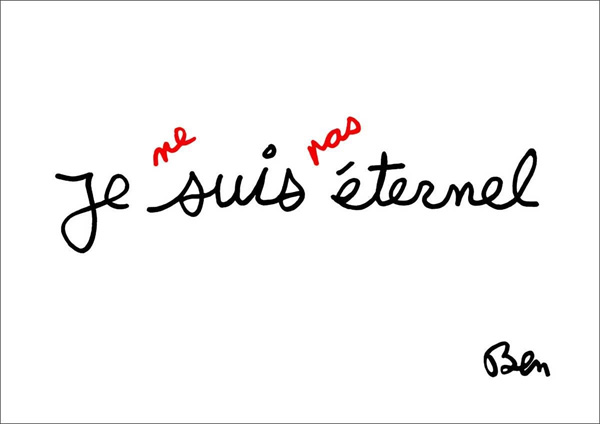 Je ne suis pas éternel
Ben